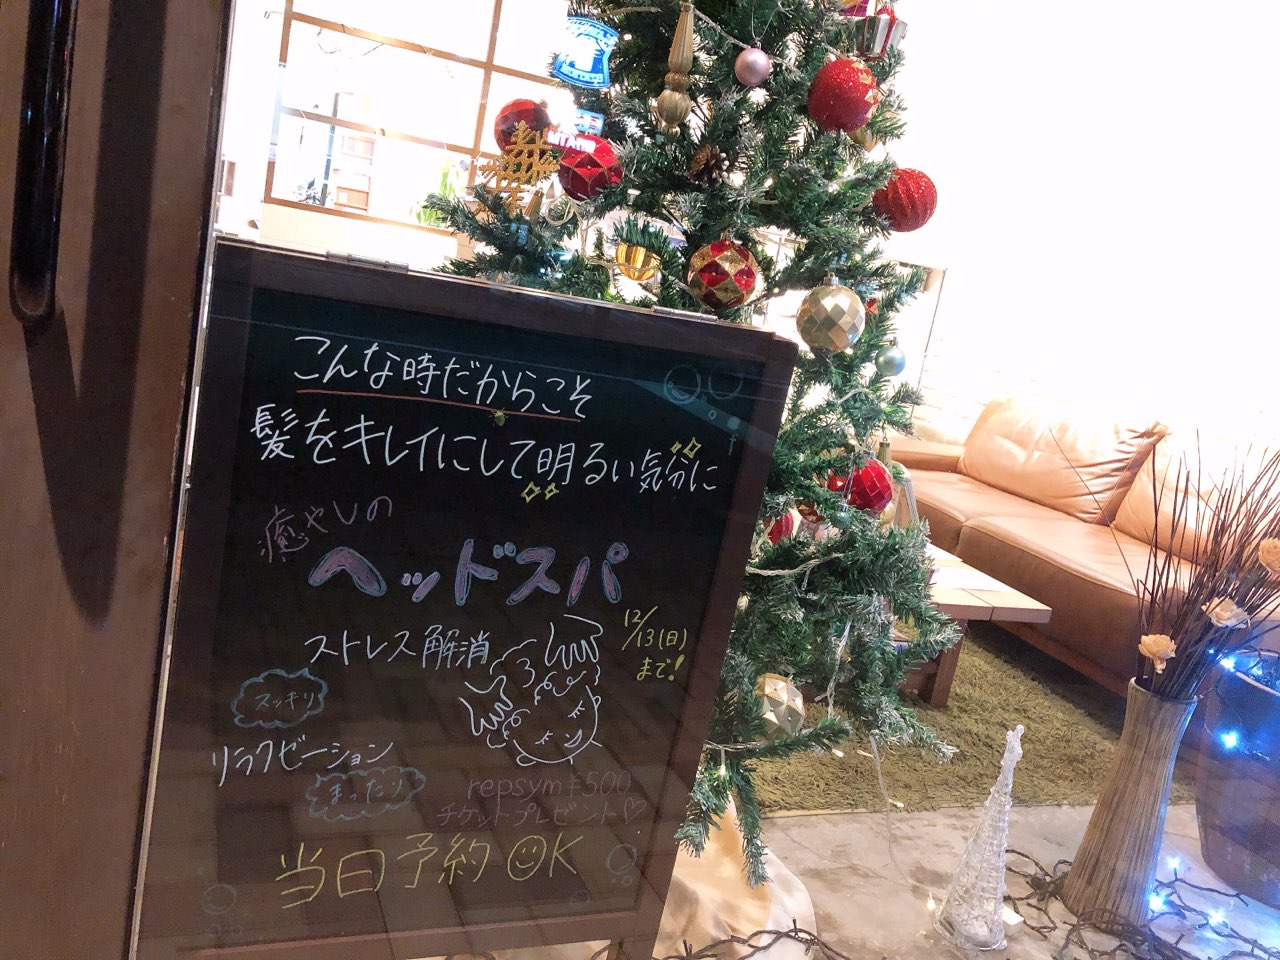 こんな時だからこそ
髪をキレイにして明るい気分に
癒やしの
ヘッドスパ
12/13(日)
まで!
ストレス解消
スッキリ
リラクゼーション
まったり
repsym¥500
チケットプレゼント♡
当日予約OK